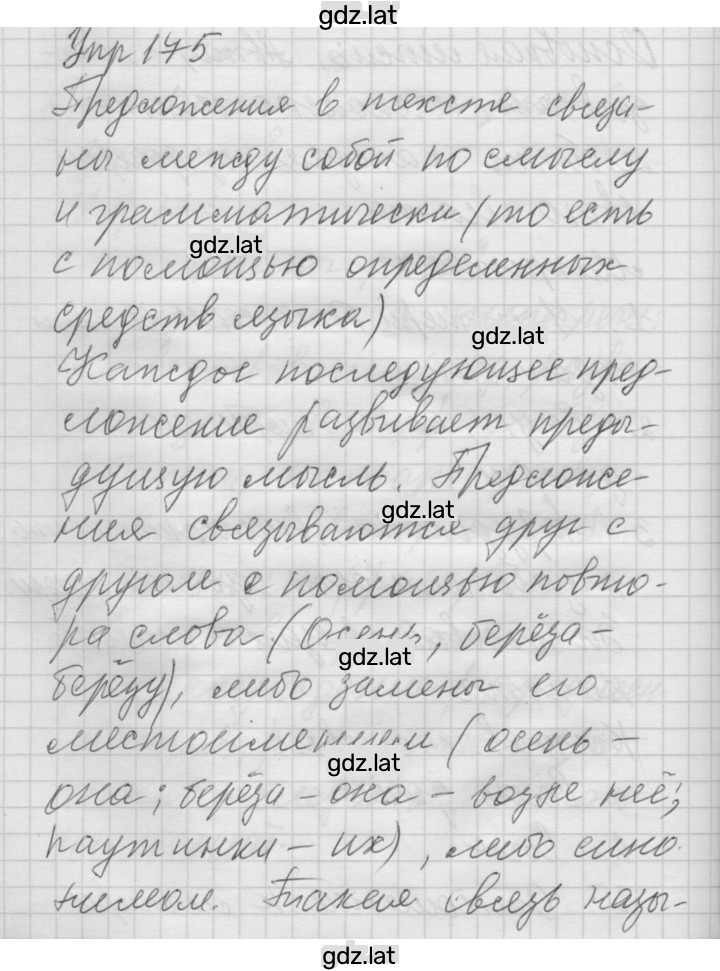 gdz.lat
Упр 175
Предложения в тексте связа-
ны между собой по смыслу
и грамматически (то есть
gdz.lat
с помощью определенных
средств языка)
gdz.lat
Каждое последующее пред-
ложение развивает преды-
дущую мысль. Предложе-
gdz.lat
ния связываются друг с
другом с помощью повто-
ра слова (Осень, берёза-
gdz.lat
берёзу), либо замены его
местоимением (осень-
gdz.lat
она; берёза-она-возле неё;
паутинки-их), либо сино-
нимом. Такая связь назы-
gdz.lat